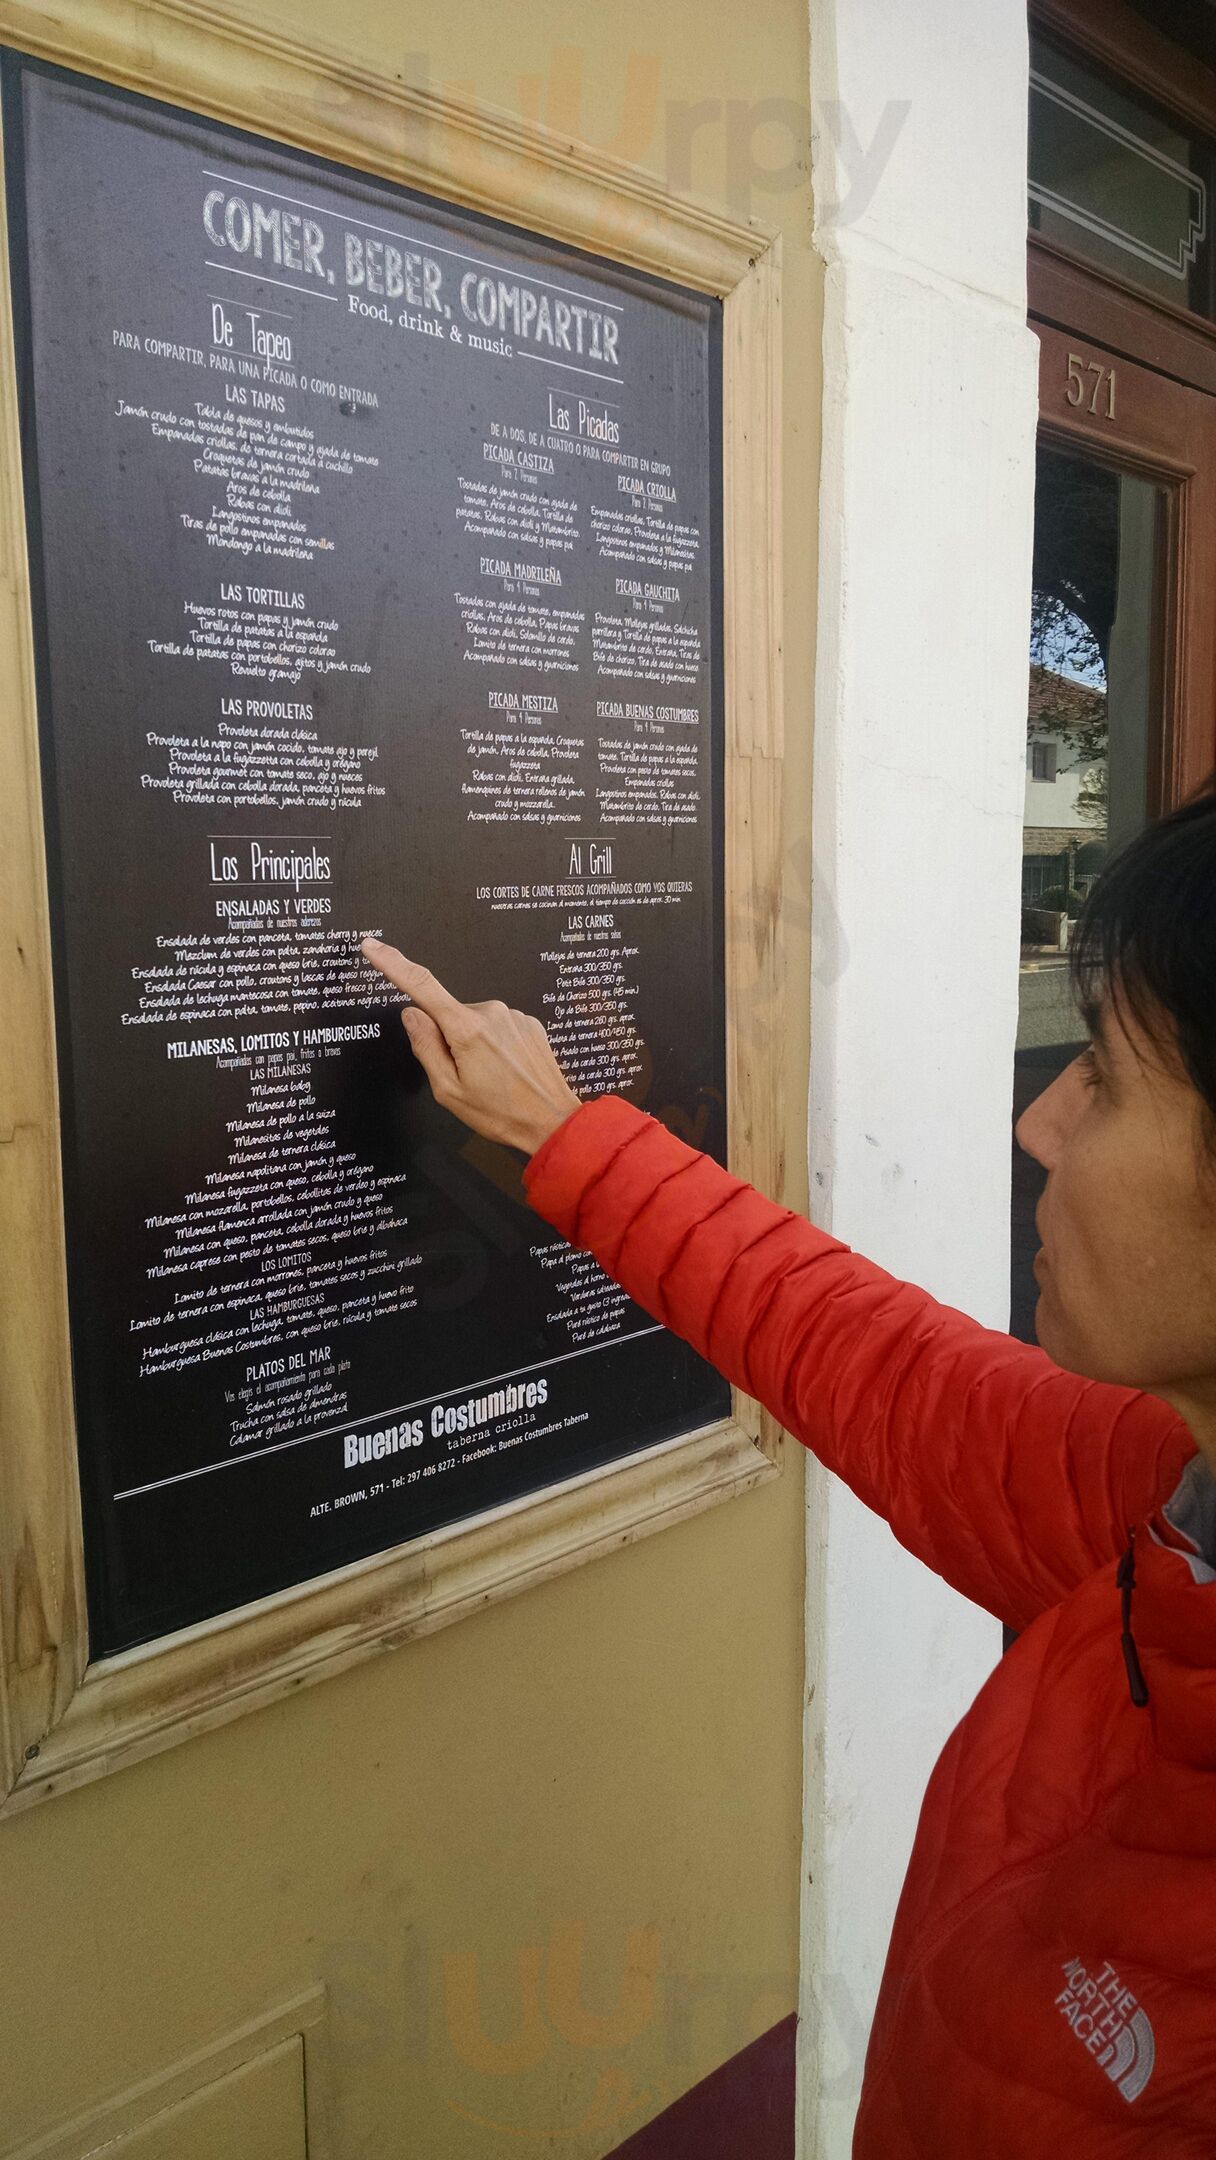 COMER, BEBER, COMPARTIR
Food, drink & music
De Tapeo
PARA COMPARTIR, PARA UNA PICADA O COMO ENTRADA
LAS TAPAS
Tabla de quesos y embutidos
Jamón crudo con tostadas de pan de campo y ajada de tomate
Empanadas criollas, de ternera cortada a cuchillo
Croquetas de jamón crudo
Patatas bravas a la madrileña
Aros de cebolla
Rabas con alioli
Langostinos empanados
Tiras de pollo empanadas con semillas
Mondongo a la madrileña
LAS TORTILLAS
Huevos rotos con papas y jamón crudo
Tortilla de patatas a la española
Tortilla de papas con chorizo colorao
Tortilla de patatas con portobellos, ajitos y jamón crudo
Revuelto gramajo
LAS PROVOLETAS
Provoleta dorada clásica
Provoleta a la napo con jamón cocido, tomate ajo y perejil
Provoleta a la fugazzetta con cebolla y orégano
Provoleta gourmet con tomate seco, ajo y nueces
Provoleta grillada con cebolla dorada, panceta y huevos fritos
Provoleta con portobellos, jamón crudo y rúcula
Las Picadas
DE A DOS, DE A CUATRO O PARA COMPARTIR EN GRUPO
PICADA CASTIZA
Para 2 Personas
Tostadas de jamón crudo con ajada de
tomate, Aros de cebolla, Tortilla de
patatas, Rabas con alioli y Matambrito.
Acompañado con salsas y papas pai
PICADA CRIOLLA
Para 2 Personas
Empanadas criollas, Tortilla de papas con
chorizo colorao, Provoleta a la fugazzeta,
Langostinos empanados y Milanesitas.
Acompañado con salsas y papas pai
PICADA MADRILEÑA
Para 4 Personas
Tostadas con ajada de tomate, empanadas
criollas, Aros de cebolla, Papas bravas
Rabas con alioli, Solomillo de cerdo,
Lomito de ternera con morrones
Acompañado con salsas y guarniciones
PICADA GAUCHITA
Para 4 Personas
Provoleta, Mollejas grilladas, Salchicha
parrillera y Tortilla de papas a la española
Matambrito de cerdo, Entraña, Tiras de
Bife de chorizo, Tira de asado con hueso
Acompañado con salsas y guarniciones
PICADA MESTIZA
Para 4 Personas
Tortilla de papas a la española, Croquetas
de jamón, Aros de cebolla, Provoleta
fugazzeta
Rabas con alioli, Entraña grillada,
flamenquines de ternera rellenos de jamón
crudo y mozzarella.
Acompañado con salsas y guarniciones
PICADA BUENAS COSTUMBRES
Para 4 Personas
Tostadas de jamón crudo con ajada de
tomate, Tortilla de papas a la española,
Provoleta con pesto de tomates secos,
Empanadas criollas
Langostinos empanados, Rabas con alioli,
Matambrito de cerdo, Tira de asado.
Acompañado con salsas y guarniciones
Los Principales
ENSALADAS Y VERDES
Acompañadas de nuestros aderezos
Ensalada de verdes con panceta, tomates cherry y nueces
Mezclum de verdes con palta, zanahoria y
Ensalada de rúcula y espinaca con queso brie, croutons y
Ensalada Caesar con pollo, croutons y lascas de queso
Ensalada de lechuga mantecosa con tomate, queso fresco y
Ensalada de espinaca con palta, tomate, pepino, aceitunas negras y
MILANESAS, LOMITOS Y HAMBURGUESAS
Acompañadas con papas pai, fritas o bravas
LAS MILANESAS
Milanesa baby
Milanesa de pollo
Milanesa de pollo a la suiza
Milanesitas de vegetales
Milanesa de ternera clásica
Milanesa napolitana con jamón y queso
Milanesa fugazzeta con queso, cebolla y orégano
Milanesa con mozarella, portobellos, cebollitas de verdeo y espinaca
Milanesa flamenca arrollada con jamón crudo y queso
Milanesa con queso, panceta, cebolla dorada y huevos fritos
Milanesa caprese con pesto de tomates secos, queso brie y albahaca
LOS LOMITOS
Lomito de ternera con morrones, panceta y huevos fritos
Lomito de ternera con espinaca, queso brie, tomates secos y zucchini grillado
LAS HAMBURGUESAS
Hamburguesa clásica con lechuga, tomate, queso, panceta y huevo frito
Hamburguesa Buenas Costumbres, con queso brie, rúcula y tomate secos
PLATOS DEL MAR
Vos elegís el acompañamiento para cada plato
Salmón rosado grillado
Trucha con salsa de almendras
Calamar grillado a la provenzal
Al Grill
LOS CORTES DE CARNE FRESCOS ACOMPAÑADOS COMO VOS QUIERAS
nuestras carnes se cocinan al momento, el tiempo de cocción es de aprox. 30 min.
LAS CARNES
Acompañadas de nuestras salsas
Mollejas de ternera 200 grs. Aprox.
Entraña 300/350 grs.
Petit Bife 300/350 grs.
Bife de Chorizo 500 grs. (45 min.)
Ojo de Bife 300/350 grs.
Lomo de ternera 260 grs. aprox.
Chuleta de ternera 400/450 grs.
de Asado con hueso 300/350 grs.
de cerdo 300 grs. aprox.
de cerdo 300 grs. aprox.
de pollo 300 grs. aprox.
Papas
Papa al plomo
Papas a
Vegetales al horno
Verduras
Ensalada a tu gusto (3
Puré rústico de papas
Puré de calabaza
Buenas Costumbres
taberna criolla
ALTE. BROWN, 571 - Tel: 297 406 8272 - Facebook: Buenas Costumbres Taberna
571
THE
NORTH
FACE
sluurpy
sluurpy